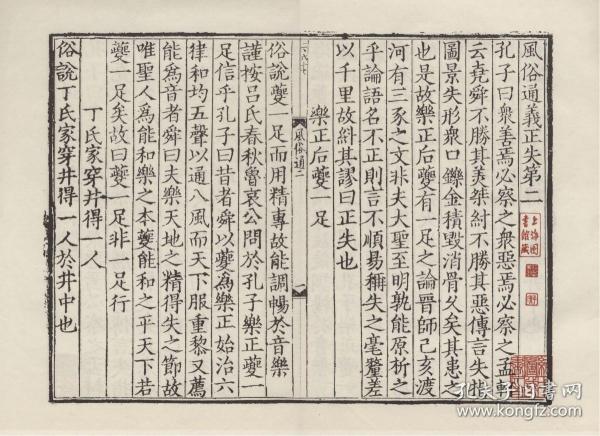 風俗通義正失第二
孔子曰衆善焉必察之衆惡焉必察之孟軻
云堯舜不勝其美桀紂不勝其惡傳言失指
圖景失形衆口鑠金積毀消骨久矣其患之
也是故樂正后夔有一足之論晉師己亥渡
河有三豕之文非夫大聖至明孰能原析之
乎論語名不正則言不順易稱失之毫釐差
以千里故糾其謬曰正失也
樂正后夔一足
俗說夔一足而用精專故能調暢於音樂
謹按呂氏春秋魯哀公問於孔子樂正夔一
足信乎孔子曰昔者舜以夔爲樂正始治六
律和均五聲以通八風而天下服重黎又薦
能爲音者舜曰夫樂天地之精得失之節故
唯聖人爲能和樂之本夔能和之平天下若
夔一足矣故曰夔一足非一足行
丁氏家穿井得一人
俗說丁氏家穿井得一人於井中也
風俗通二
一
上海圖
書館藏
孔夫子旧书网
www.kongfz.com